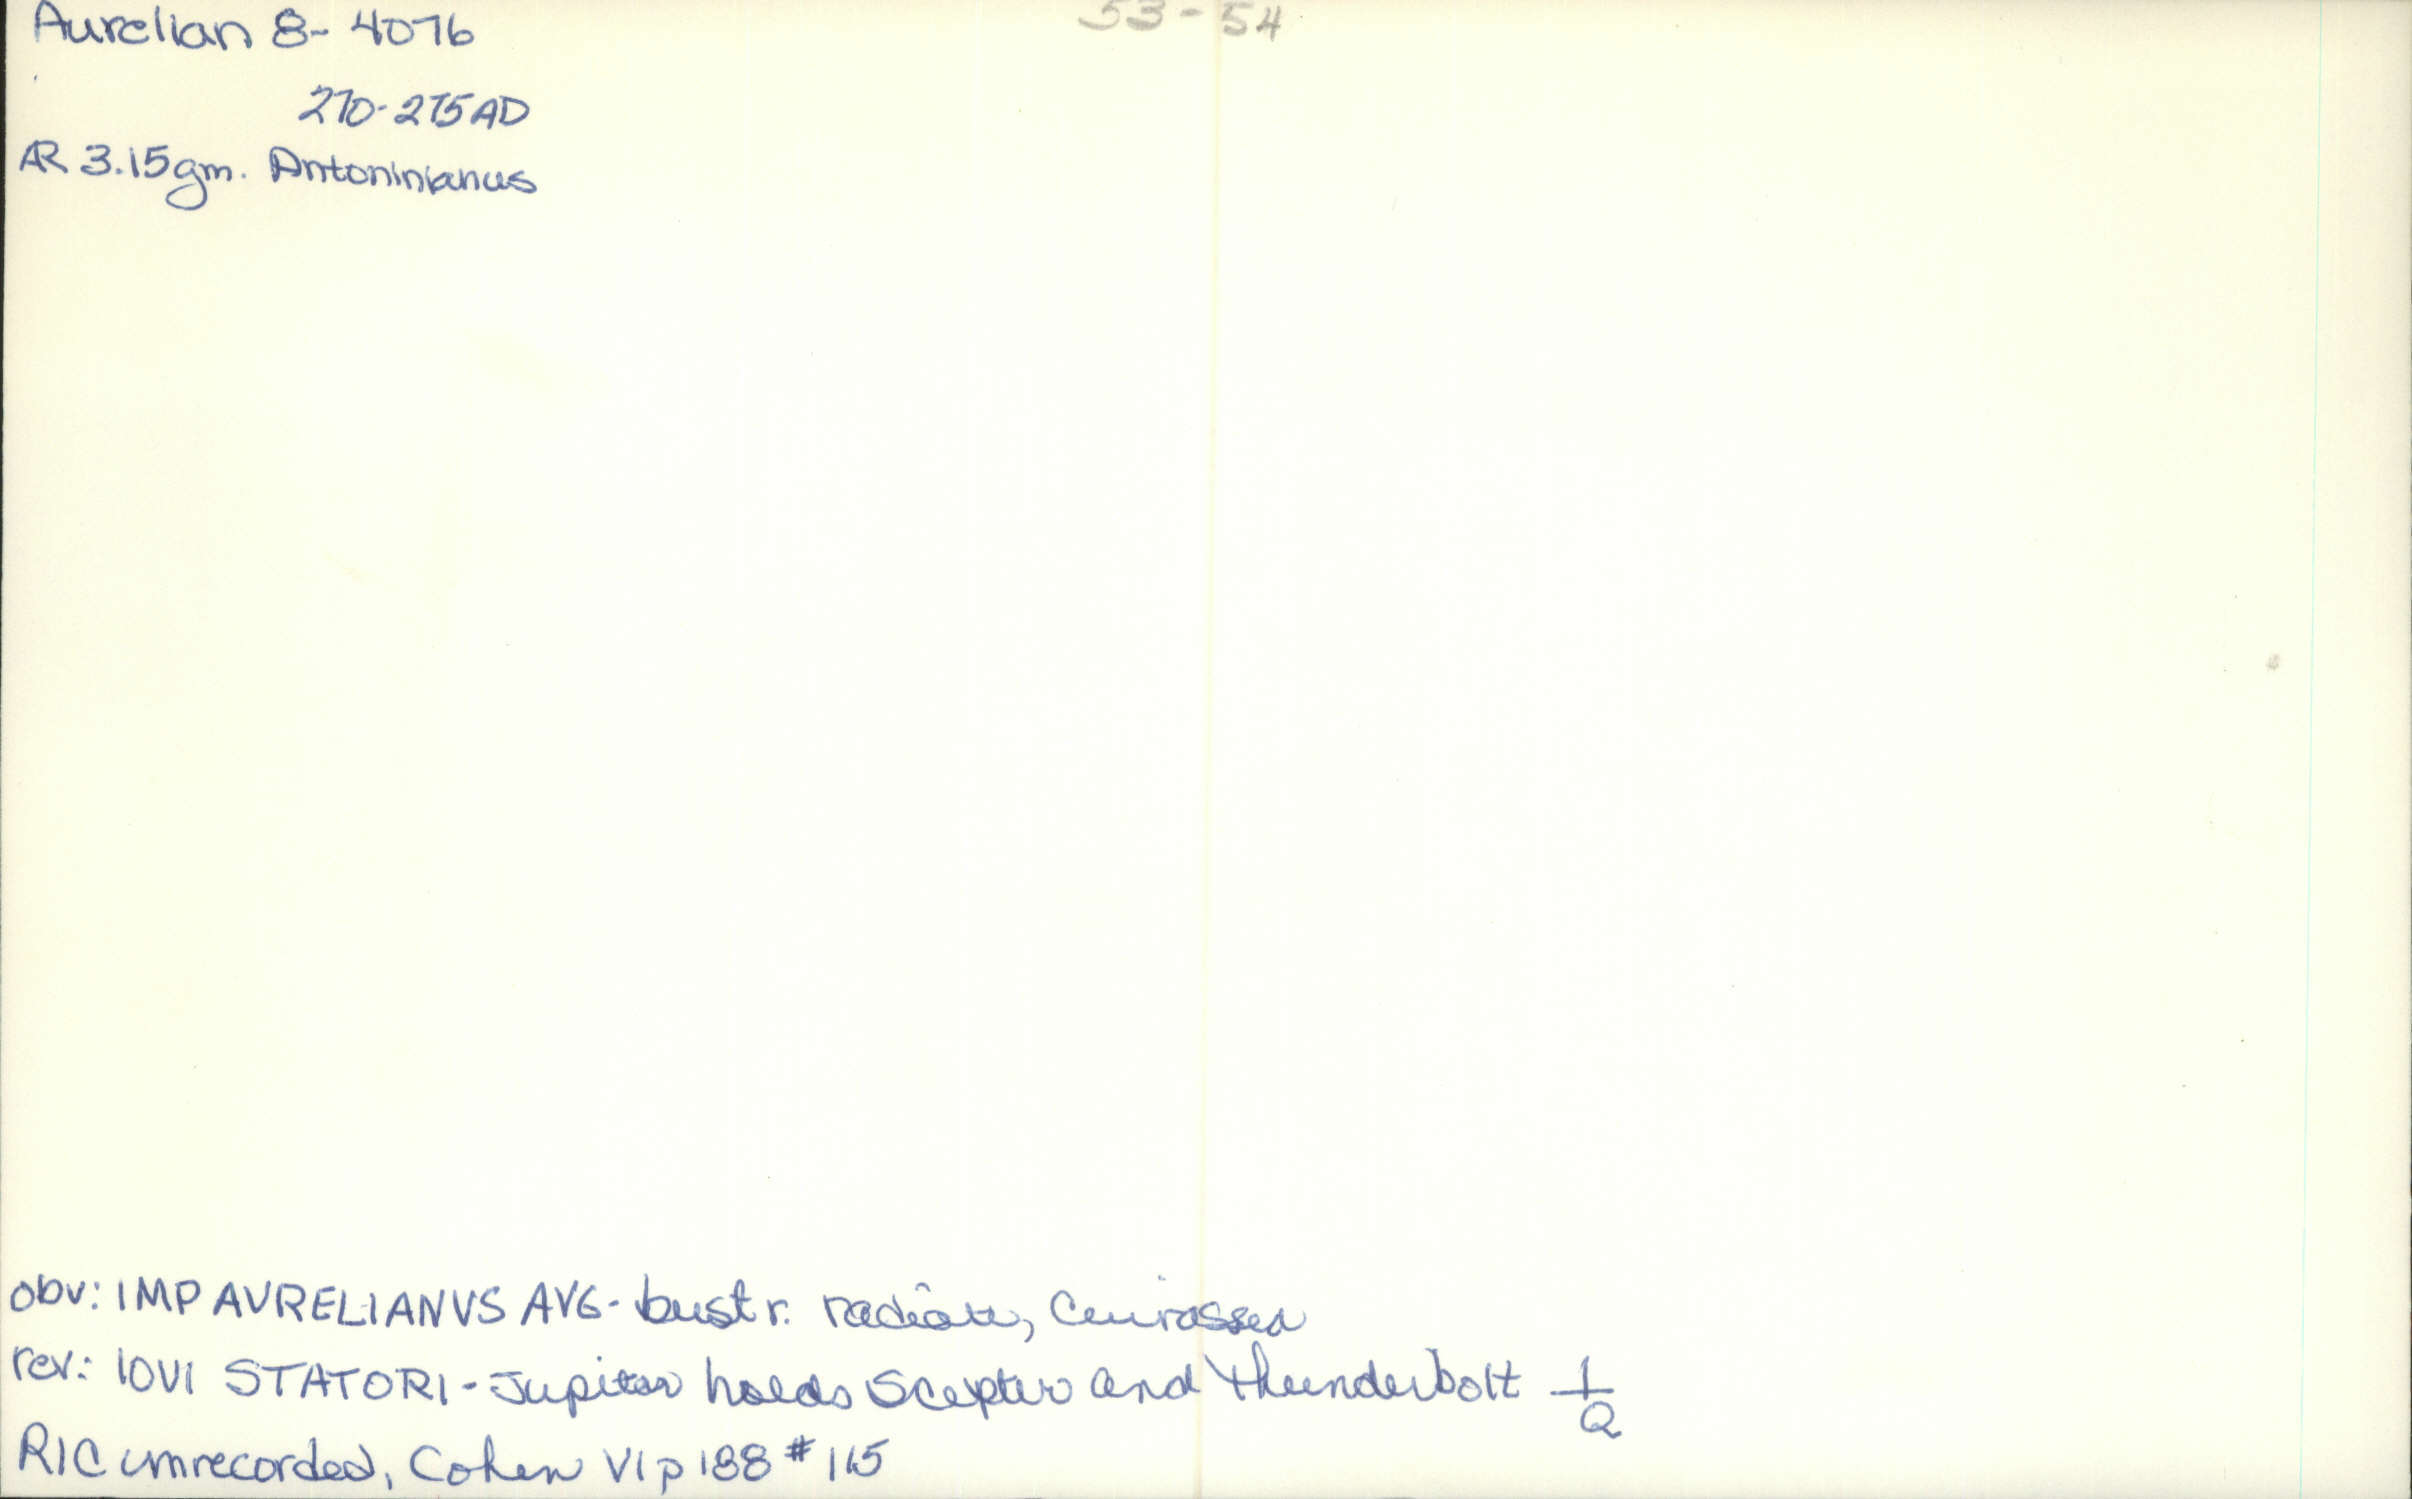 Aurelian 8-4076
53-54
270-275 AD
AR 3.15gm. Antoninianus
obv: IMP AVRELIANVS AVG- bust r. radiate, Cuirassed
rev: IOVI STATORI - Jupiter holds Scepter and thunderbolt
1
Q
RIC unrecorded, Cohen VI p 188 # 115